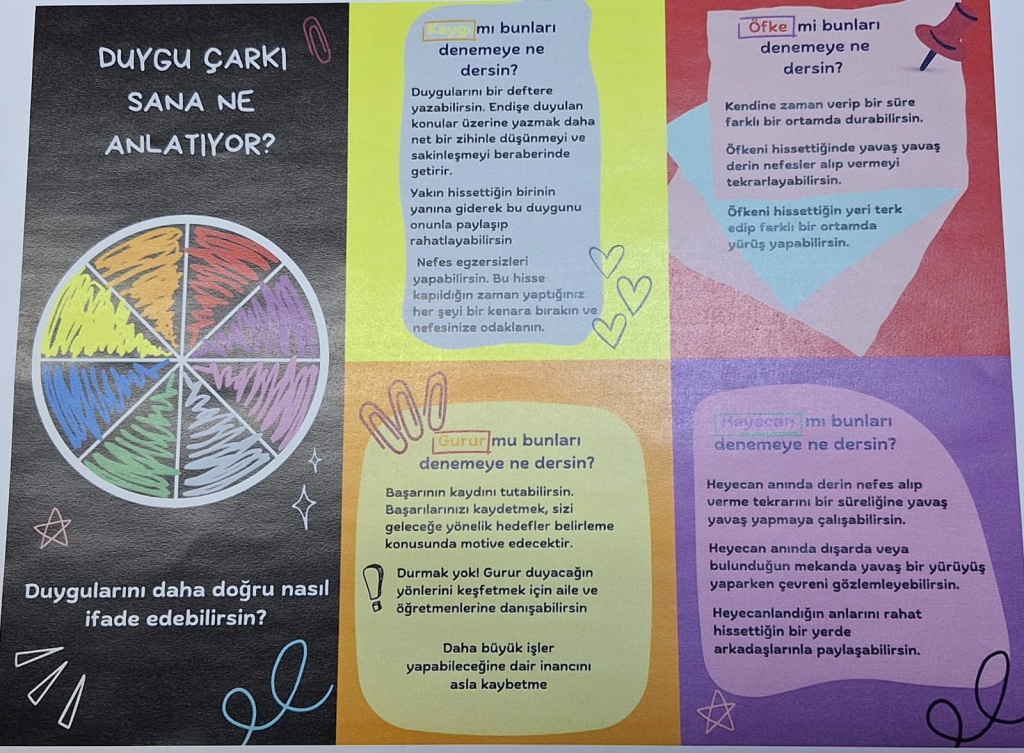 DUYGU ÇARKI
SANA NE
ANLATIYOR?
Duygularını daha doğru nasıl
ifade edebilirsin?
Kaygı mı bunları
denemeye ne
dersin?
Duygularını bir deftere
yazabilirsin. Endişe duyulan
konular üzerine yazmak daha
net bir zihinle düşünmeyi ve
sakinleşmeyi beraberinde
getirir.
Yakın hissettiğin birinin
yanına giderek bu duygunu
onunla paylaşıp
rahatlayabilirsin
Nefes egzersizleri
yapabilirsin. Bu hisse
kapıldığın zaman yaptığınız
her şeyi bir kenara bırakın ve
nefesinize odaklanın.
Öfke mi bunları
denemeye ne
dersin?
Kendine zaman verip bir süre
farklı bir ortamda durabilirsin.
Öfkeni hissettiğinde yavaş yavaş
derin nefesler alıp vermeyi
tekrarlayabilirsin.
Öfkeni hissettiğin yeri terk
edip farklı bir ortamda
yürüş yapabilirsin.
Gurur mu bunları
denemeye ne dersin?
Başarının kaydını tutabilirsin.
Başarılarınızı kaydetmek, sizi
geleceğe yönelik hedefler belirleme
konusunda motive edecektir.
Durmak yok! Gurur duyacağın
yönlerini keşfetmek için aile ve
öğretmenlerine danışabilirsin
Daha büyük işler
yapabileceğine dair inancını
asla kaybetme
Heyecan mı bunları
denemeye ne dersin?
Heyecan anında derin nefes alıp
verme tekrarını bir süreliğine yavaş
yavaş yapmaya çalışabilirsin.
Heyecan anında dışarda veya
bulunduğun mekanda yavaş bir yürüyüş
yaparken çevreni gözlemleyebilirsin.
Heyecanlandığın anlarını rahat
hissettiğin bir yerde
arkadaşlarınla paylaşabilirsin.